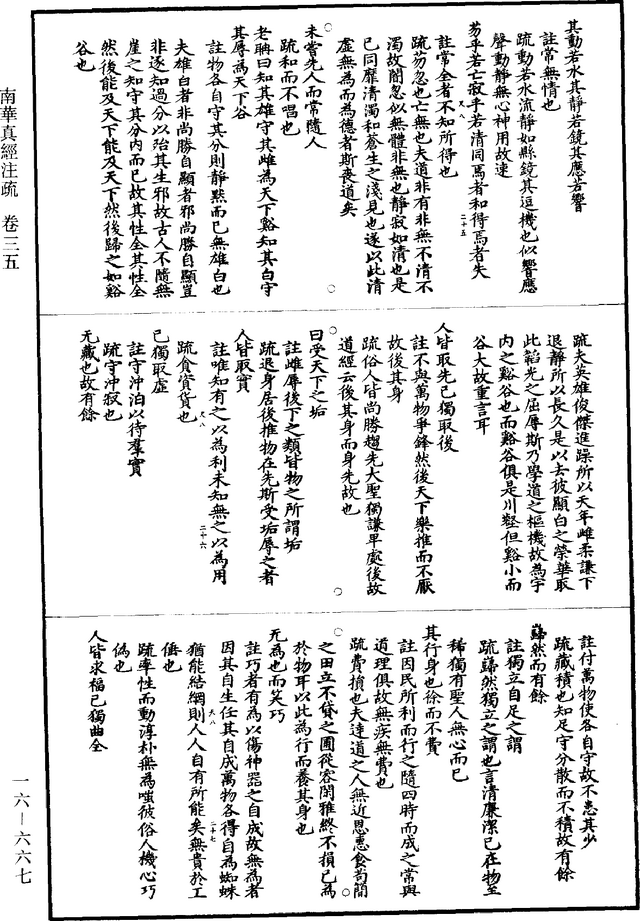 南華真經注疏　卷三五
其動若水其靜若鏡其應若響
註常無情也
疏動若水流靜如縣鏡其逗機也似響應
聲動靜無心神用故速
芴乎若亡寂乎若清同焉者和得焉者失
註常全者不知所得也
疏芴忽也亡無也夫道非有非無不清不
濁故闇忽似無體非無也靜寂如清也是
已同靡清濁和蒼生之淺見也遂以此清
虛無為而為德者斯喪道矣
未嘗先人而常隨人
疏和而不唱也
老聃曰知其雄守其雌為天下谿知其白守
其辱為天下谷
註物各自守其分則靜默而已無雄白也
夫雄白者非尚勝自顯者邪尚勝自顯豈
非逐知過分以殆其生邪故古人不隨無
崖之知守其分內而已故其性全其性全
然後能及天下能及天下然後歸之如谿
谷也
疏夫英雄俊傑進躁所以夭年雌柔謙下
退靜所以長久是以去彼顯白之榮華取
此韜光之屈辱斯乃學道之樞機故為宇
內之谿谷也而谿谷俱是川壑但谿小而
谷大故重言耳
人皆取先己獨取後
註不與萬物爭鋒然後天下樂推而不厭
故後其身
疏俗人皆尚勝趨先大聖獨謙卑處後故
道經云後其身而身先故也
曰受天下之垢
註雌辱後下之類皆物之所謂垢
疏退身居後推物在先斯受垢辱之者
人皆取實
註唯知有之以為利未知無之以為用
疏貪資貨也
己獨取虛
註守沖泊以待羣實
疏守沖寂也
无藏也故有餘
註付萬物使各自守故不患其少
疏藏積也知足守分散而不積故有餘
巋然而有餘
註獨立自足之謂
疏巋然獨立之謂也言清廉潔己在物至
稀獨有聖人無心而已
其行身也徐而不費
註因民所利而行之隨四時而成之常與
道理俱故無疾無費也
疏費損也夫達道之人無近恩惠食苟簡
之田立不貸之圃從容閑雅終不損己為
於物耳以此為行而養其身也
无為也而笑巧
註巧者有為以傷神器之自成故無為者
因其自生任其自成萬物各得自為蜘蛛
猶能結網則人人自有所能矣無貴於工
倕也
疏率性而動淳朴無為嗤彼俗人機心巧
偽也
人皆求福己獨曲全
一六—六六七